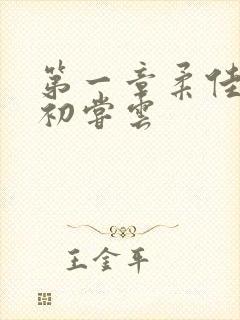 第一章柔佳
初尝云
王金平